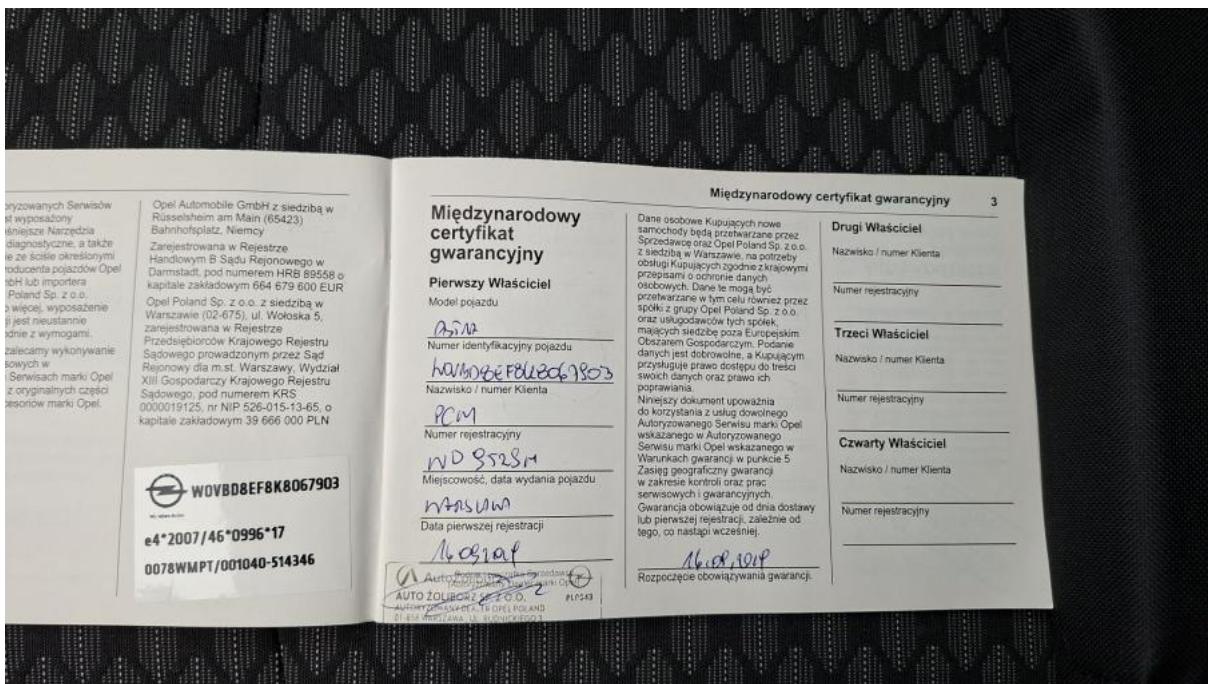 oryzowanych Serwisów
st wyposażony
śniejsze Narzędzia
diagnostyczne, a także
ie ze ściśle określonymi
roducenta pojazdów Opel
bH lub importera
Poland Sp. z o.o.
o więcej, wyposażenie
ji jest nieustannie
dnie z wymogami.
zalecamy wykonywanie
sowych w
Serwisach marki Opel
z oryginalnych części
cesoriów marki Opel.
Opel Automobile GmbH z siedzibą w
Rüsselsheim am Main (65423)
Bahnhofsplatz, Niemcy
Zarejestrowana w Rejestrze
Handlowym B Sądu Rejonowego w
Darmstadt, pod numerem HRB 89558 o
kapitale zakładowym 664 679 600 EUR
Opel Poland Sp. z o.o. z siedzibą w
Warszawie (02-675), ul. Wołoska 5,
zarejestrowana w Rejestrze
Przedsiębiorców Krajowego Rejestru
Sądowego prowadzonym przez Sąd
Rejonowy dla m.st. Warszawy, Wydział
XIII Gospodarczy Krajowego Rejestru
Sądowego, pod numerem KRS
0000019125, nr NIP 526-015-13-65, o
kapitale zakładowym 39 666 000 PLN
W0VBD8EF8K8067903
e4*2007/46*0996*17
0078WMPT/001040-514346
Międzynarodowy certyfikat gwarancyjny 3
Międzynarodowy
certyfikat
gwarancyjny
Pierwszy Właściciel
Model pojazdu
Numer identyfikacyjny pojazdu
W0VBD8EF8K8067903
Nazwisko / numer Klienta
PCM
Numer rejestracyjny
Miejscowość, data wydania pojazdu
Data pierwszej rejestracji
AUTO ŻOLIBORZ SP. Z O.O.
AUTORYZOWANY DEALER OPEL POLAND
Dane osobowe Kupujących nowe
samochody będą przetwarzane przez
Sprzedawcę oraz Opel Poland Sp. z o.o.
z siedzibą w Warszawie, na potrzeby
obsługi Kupujących zgodnie z krajowymi
przepisami o ochronie danych
osobowych. Dane te mogą być
przetwarzane w tym celu również przez
spółki z grupy Opel Poland Sp. z o.o.
oraz usługodawców tych spółek,
mających siedzibę poza Europejskim
Obszarem Gospodarczym. Podanie
danych jest dobrowolne, a Kupującym
przysługuje prawo dostępu do treści
swoich danych oraz prawo ich
poprawiania.
Niniejszy dokument upoważnia
do korzystania z usług dowolnego
Autoryzowanego Serwisu marki Opel
wskazanego w Autoryzowanego
Serwisu marki Opel wskazanego w
Warunkach gwarancji w punkcie 5
Zasięg geograficzny gwarancji
w zakresie kontroli oraz prac
serwisowych i gwarancyjnych.
Gwarancja obowiązuje od dnia dostawy
lub pierwszej rejestracji, zależnie od
tego, co nastąpi wcześniej.
16.09.2019
Rozpoczęcie obowiązywania gwarancji.
Drugi Właściciel
Nazwisko / numer Klienta
Numer rejestracyjny
Trzeci Właściciel
Nazwisko / numer Klienta
Numer rejestracyjny
Czwarty Właściciel
Nazwisko / numer Klienta
Numer rejestracyjny